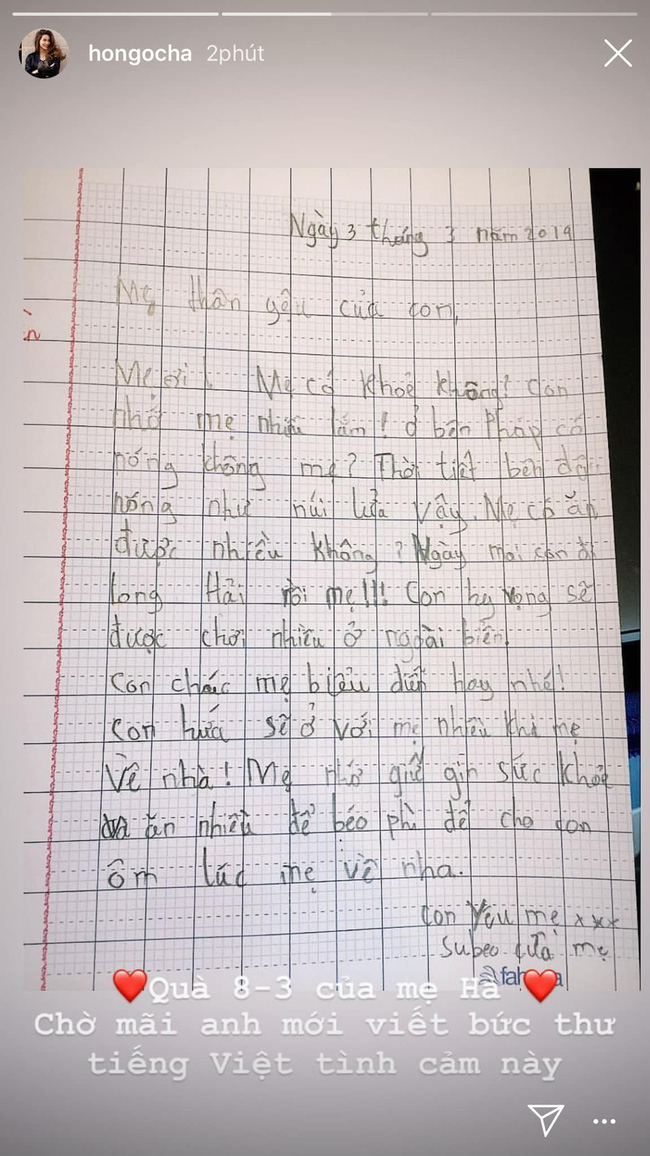 hongocha 2phút
Ngày 3 tháng 3 năm 2019
Mẹ thân yêu của con,
Mẹ ơi! Mẹ có khoẻ không? Con
nhớ mẹ nhiều lắm! ở bên Pháp có
nóng không mẹ? Thời tiết bên đây
nóng như núi lửa vậy. Mẹ có ăn
được nhiều không? Ngày mai con đi
long Hải rồi mẹ!!! Con hy vọng sẽ
được chơi nhiều ở ngoài biển.
con chúc mẹ biểu diễn hay nhé!
con hứa sẽ ở với mẹ nhiều khi mẹ
về nhà! Mẹ nhớ giữ gìn sức khoẻ
và ăn nhiều để béo phì để cho con
ôm lúc mẹ về nha.
con Yêu mẹ xxx
subeo của mẹ
❤️Quà 8-3 của mẹ Hà ❤️
Chờ mãi anh mới viết bức thư
tiếng Việt tình cảm này